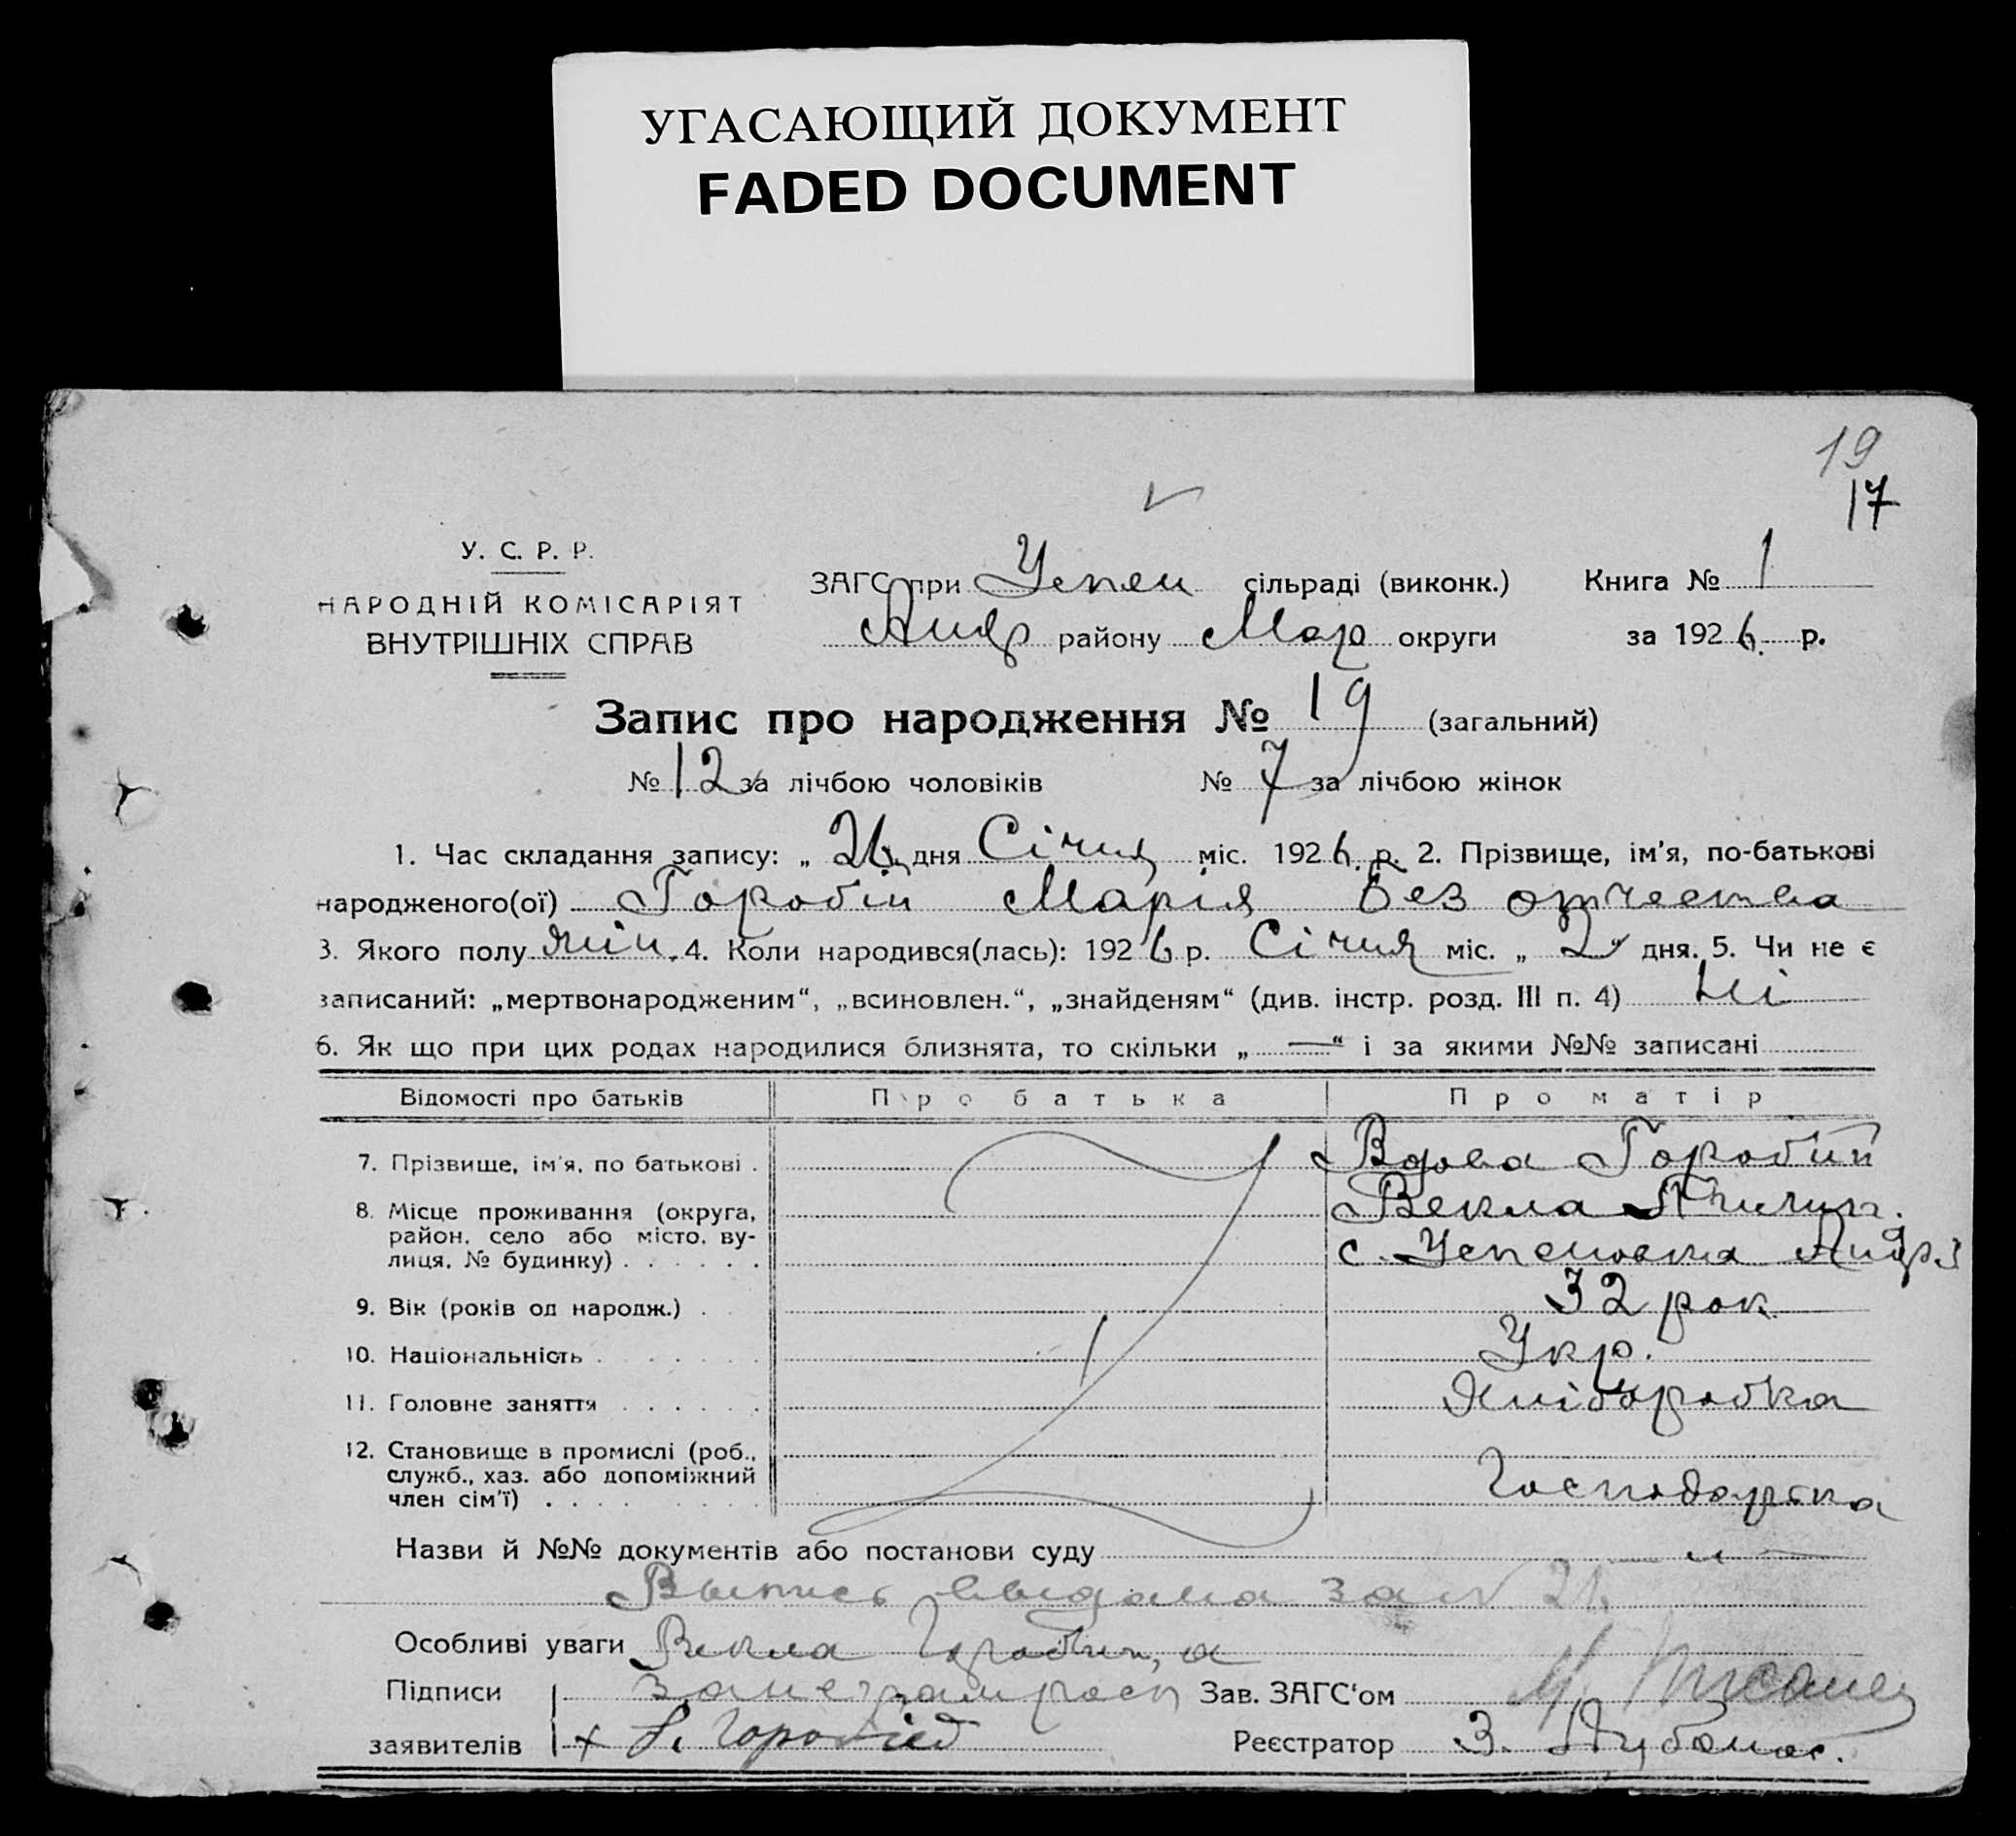 УГАСАЮЩИЙ ДОКУМЕНТ
FADED DOCUMENT
19
17
У. С. Р. Р.
НАРОДНІЙ КОМІСАРІЯТ
ВНУТРІШНІХ СПРАВ
ЗАГС при Успен сільраді (виконк.) Книга № 1
Андр району Мар округи за 1926 р.
Запис про народження № 19 (загальний)
№ 12 за лічбою чоловіків № 7 за лічбою жінок
1. Час складання запису: „ 26 дня Січня міс. 1926 р. 2. Прізвище, ім'я, по-батькові
народженого(ої) Горобій Марія Без отчества
3. Якого полу жін. 4. Коли народився(лась): 1926 р. Січня міс. „ 2 " дня. 5. Чи не є
записаний: „мертвонародженим“, „всиновлен.“, „знайденям“ (див. інстр. розд. III п. 4) Ні
6. Як що при цих родах народилися близнята, то скільки „ — “ і за якими №№ записані
Відомості про батьків Про батька Про матір
7. Прізвище, ім'я, по батькові . Вдова Горобій
8. Місце проживання (округа, Векла
район, село або місто, ву- с. Успеновка Андр.
лиця, № будинку) . . . . . .
9. Вік (років од народж.) . 32 рок
10. Національність . . . . . . Укр.
11. Головне заняття . . . . . . Хліборобка
12. Становище в промислі (роб.,
служб., хаз. або допоміжний Господарька
член сім'ї) . . . . . . . .
Назви й №№ документів або постанови суду
Выпись выдана за № 21
Особливі уваги Векла Горобий, а
Підписи за неграм расп Зав. ЗАГС'ом М.
заявителів + Горобієв Реєстратор З.